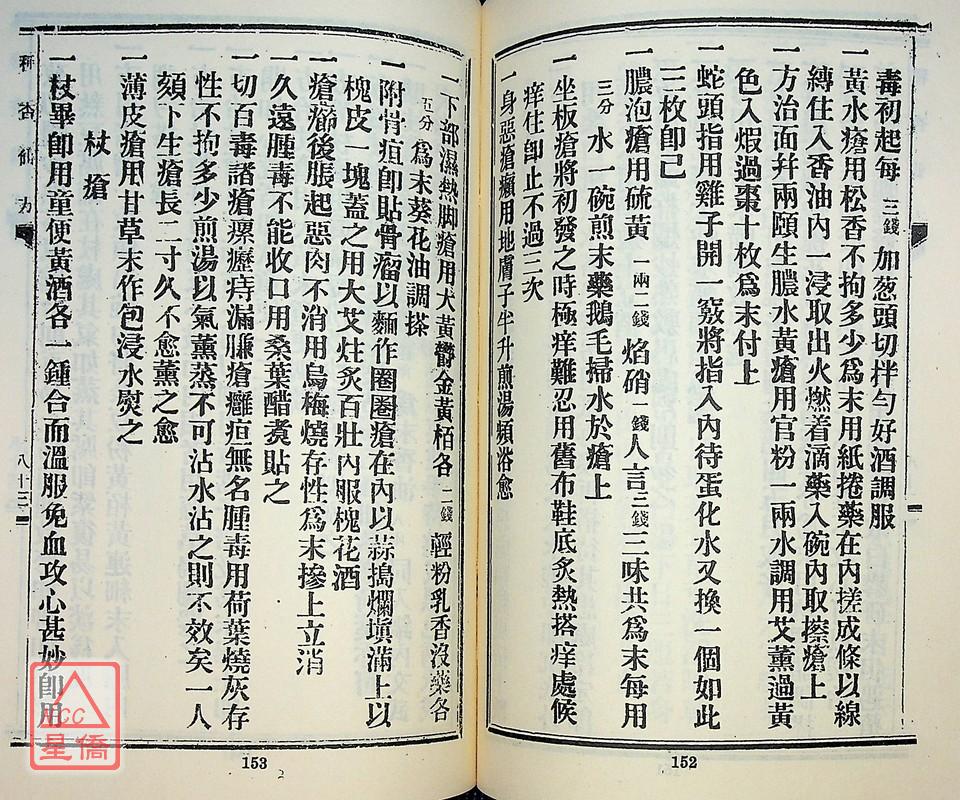 毒初起每三錢加葱頭切拌勻好酒調服
一黃水瘡用松香不拘多少爲末用紙捲藥在內搓成條以線
縛住入香油內一浸取出火燃着滴藥入碗內取擦瘡上
一方治面幷兩頤生膿水黃瘡用官粉一兩水調用艾薰過黃
色入煆過棗十枚爲末付上
一蛇頭指用雞子開一竅將指入內待蛋化水又換一個如此
三枚卽已
一膿泡瘡用硫黃一兩二錢焰硝一錢人言三錢三味共爲末每用
三分水一碗煎末藥鵝毛掃水於瘡上
一坐板瘡將初發之時極痒難忍用舊布鞋底炙熱搭痒處候
痒住卽止不過三次
一身惡瘡癩用地膚子半升煎湯頻浴愈
152
一下部濕熱脚瘡用大黃鬱金黃栢各二錢輕粉乳香沒藥各
五分爲末葵花油調搽
一附骨疽卽貼骨瘤以麵作圈圈瘡在內以蒜搗爛塡滿上以
槐皮一塊蓋之用大艾炷炙百壯內服槐花酒
一瘡癤後脹起惡肉不消用烏梅燒存性爲末摻上立消
一久遠腫毒不能收口用桑葉醋煑貼之
一切百毒諸瘡瘰癧痔漏臁瘡癰疽無名腫毒用荷葉燒灰存
性不拘多少煎湯以氣薰蒸不可沾水沾之則不效矣一人
頦下生瘡長二寸久不愈薰之愈
一薄皮瘡用甘草末作包浸水熨之
杖瘡
一杖畢卽用童便黃酒各一鍾合而溫服免血攻心甚妙卽用
种杏仙方
八十三
153
2
NCC
星僑